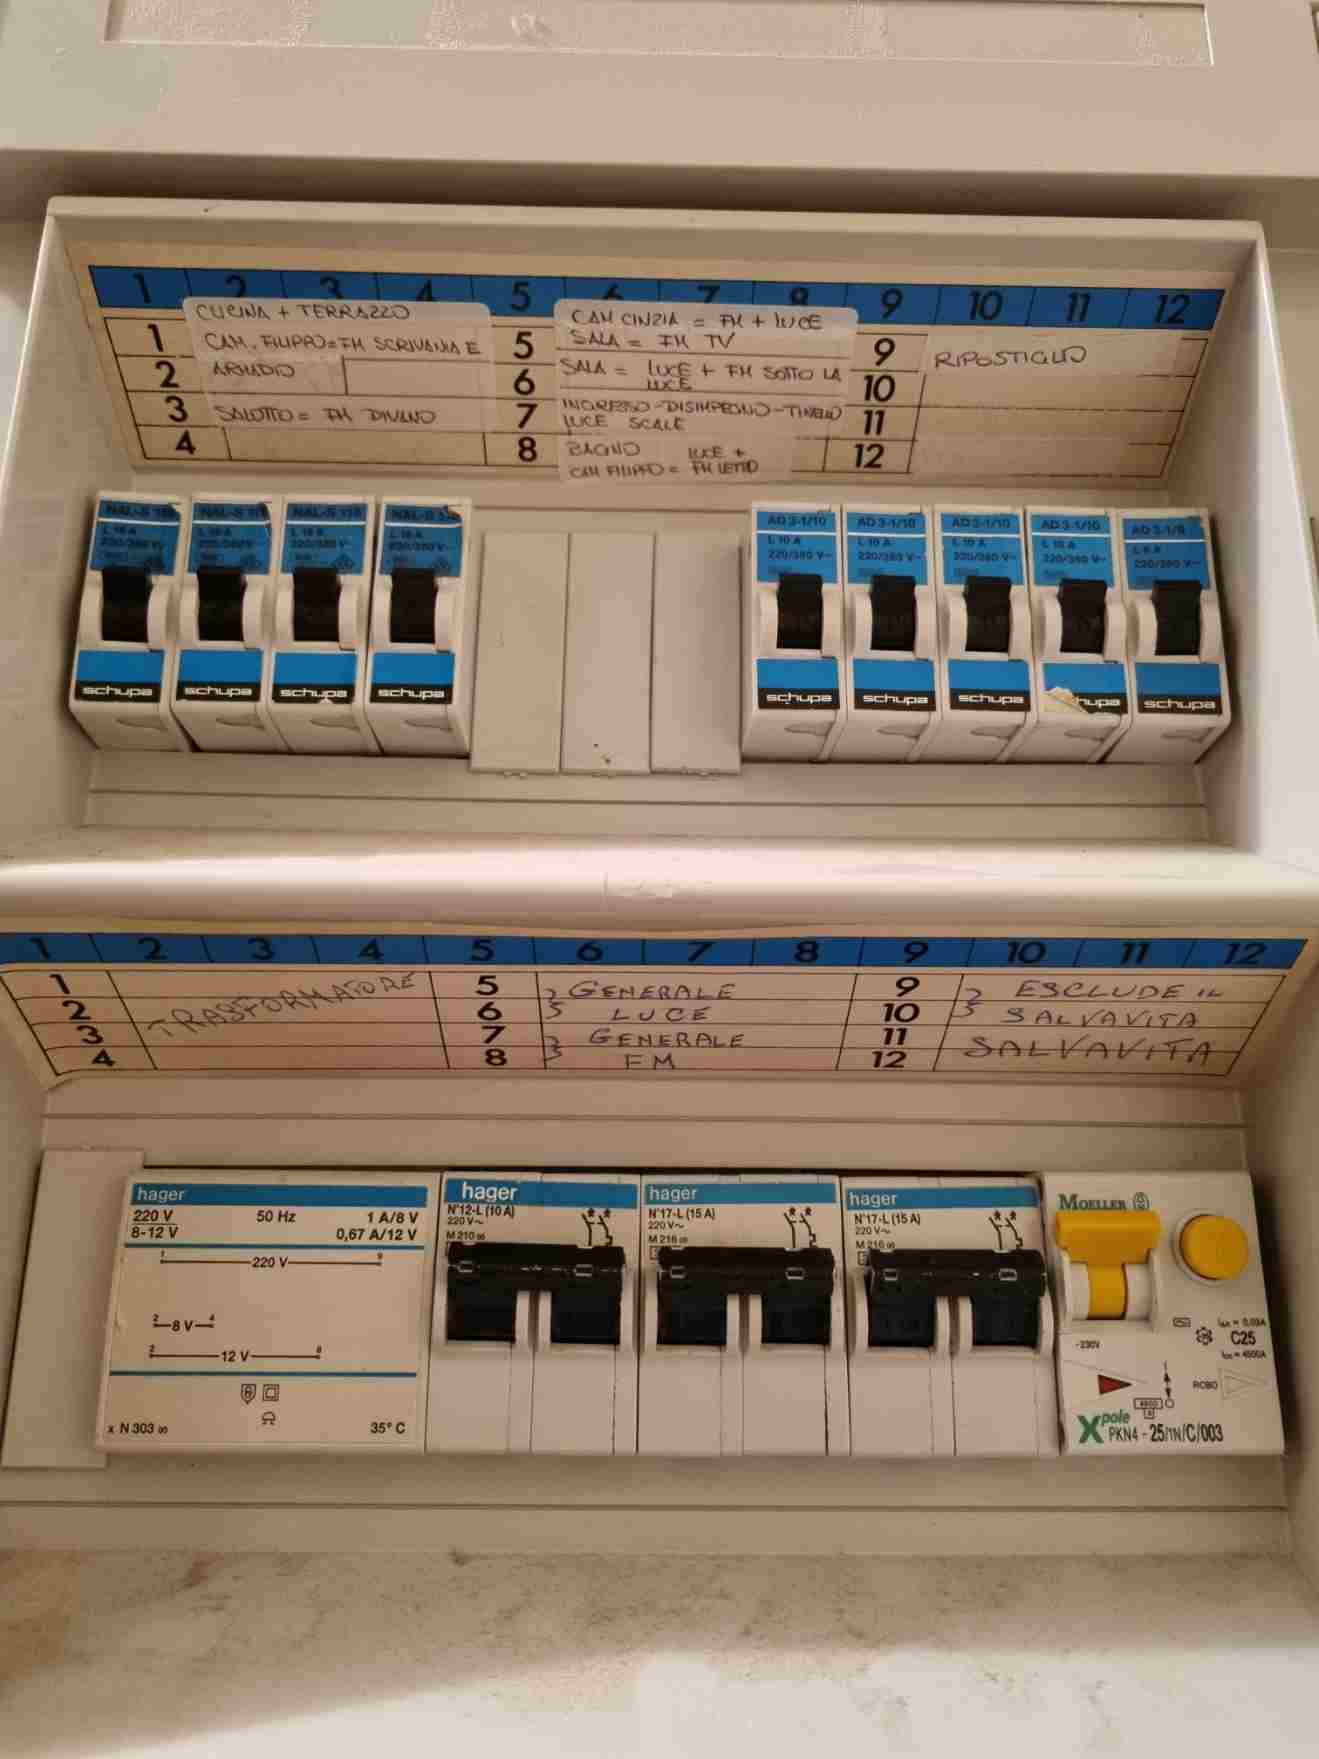 1 2 3 4 5 6 7 8 9 10 11 12
1 CUCINA + TERRAZZO
CAM. FILIPPO = FM SCRIVANIA E
2 ARMADIO
3 SALOTTO = FM DIVANO
4
5 CAM CINZIA = FM + LUCE
SALA = FM TV
6 SALA = LUCE + FM SOTTO LA
LUCE
7 INGRESSO - DISIMPEGNO - TINELLO
LUCE SCALE
8 BAGNO LUCE +
CAM FILIPPO = FM LETTO
9 RIPOSTIGLIO
10
11
12
NAL-S
L 16 A
220/380 V~
schupa
NAL-S
L 16 A
220/380 V~
schupa
NAL-S
L 16 A
220/380 V~
schupa
NAL-S
L 16 A
220/380 V~
schupa
AD 3-1/10
L 10 A
220/380 V~
schupa
AD 3-1/10
L 10 A
220/380 V~
schupa
AD 3-1/10
L 10 A
220/380 V~
schupa
AD 3-1/10
L 10 A
220/380 V~
hupa
AD 3-1/6
L 6 A
220/380 V~
schupa
1 2 3 4 5 6 7 8 9 10 11 12
1
2 TRASFORMATORE
3
4
5 GENERALE
6 LUCE
7 GENERALE
8 FM
9 ESCLUDE IL
10 SALVAVITA
11 SALVAVITA
12
hager
220 V 50 Hz 1 A/8 V
8-12 V 0,67 A/12 V
1 220 V 9
2 8 V 4
2 12 V 8
x N 303 35° C
hager
N°12-L (10 A)
220 V~
M 210
hager
N°17-L (15 A)
220 V~
M 216
hager
N°17-L (15 A)
220 V~
M 216
MOELLER
IΔn = 0,03A
C25
Icn = 4500A
~230V
RCBO
I
4500
3
O
Xpole
PKN4 - 25/1N/C/003